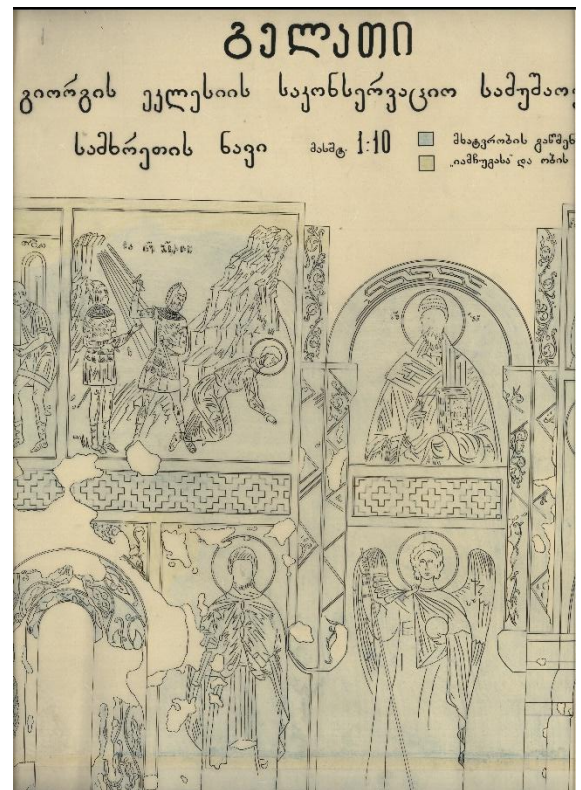 გელათი
გიორგის ეკლესიის საკონსერვაციო სამუშაო
სამხრეთის ნავი მასშტ. 1:10
მხატვრობის გაწმენ
„იამჩუგასა“ და ობის